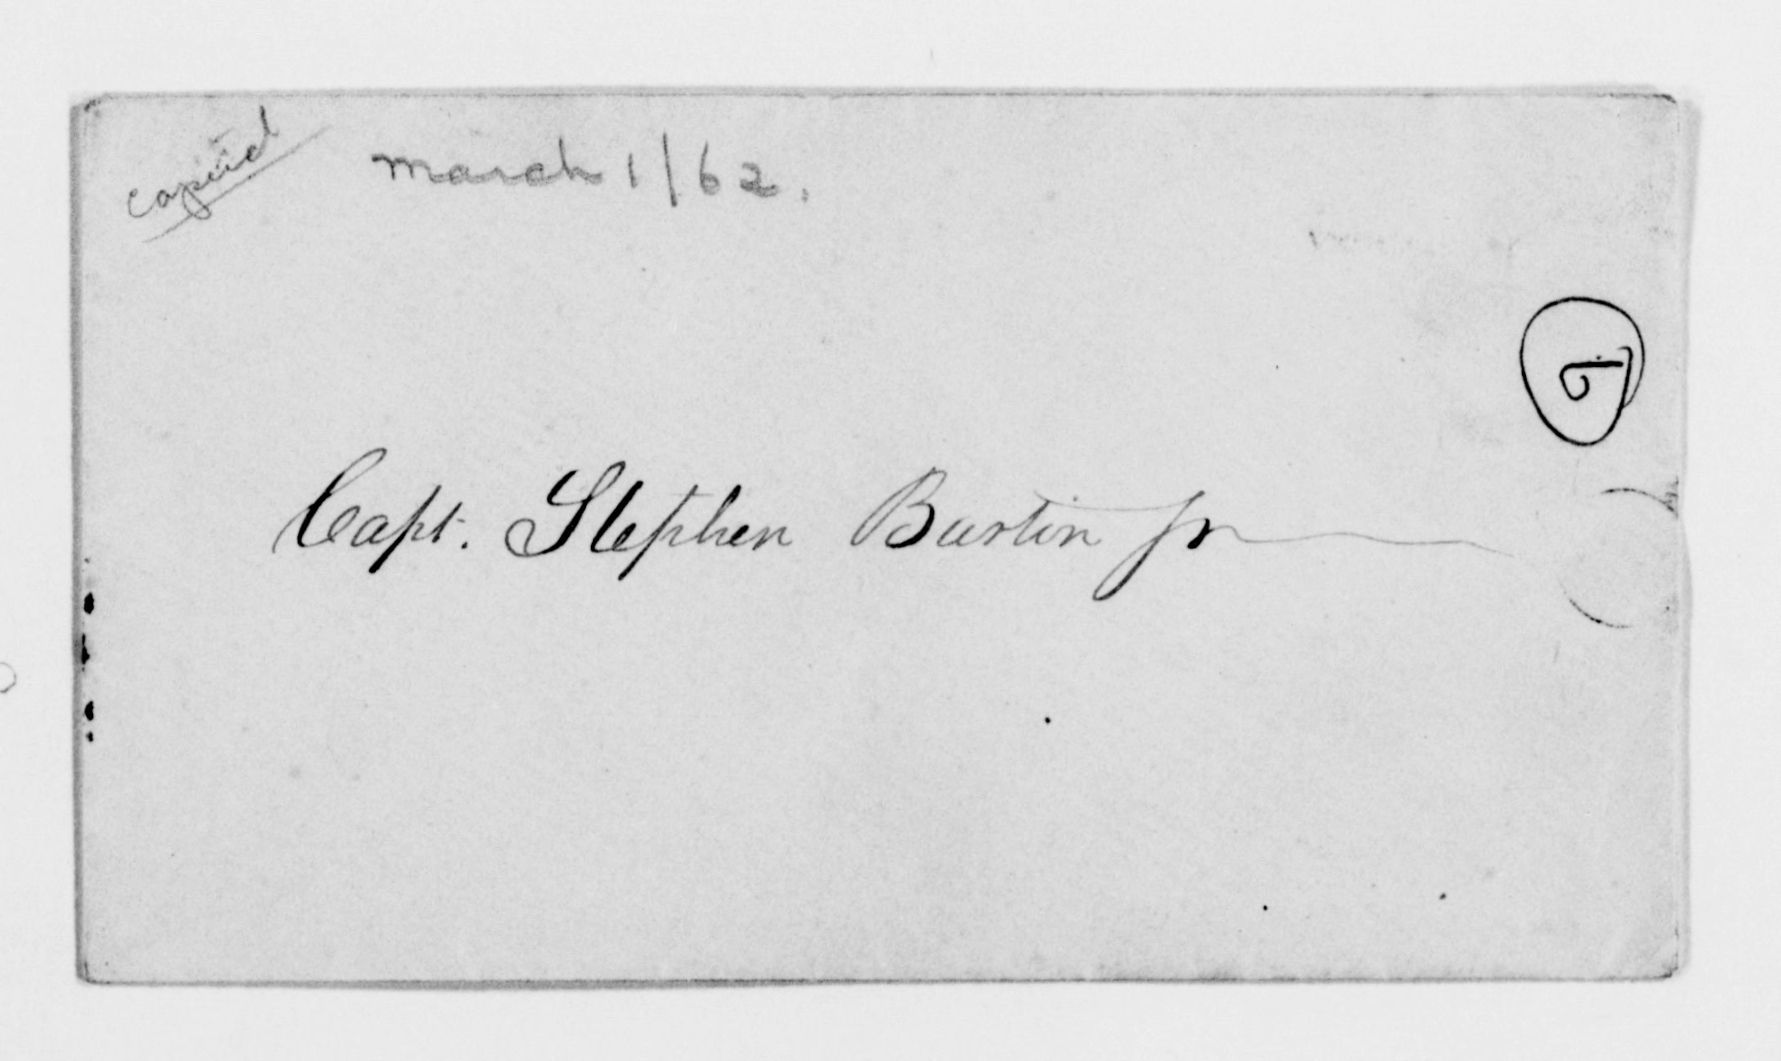 copied
March 1/62.
5
Capt. Stephen Barton Jr